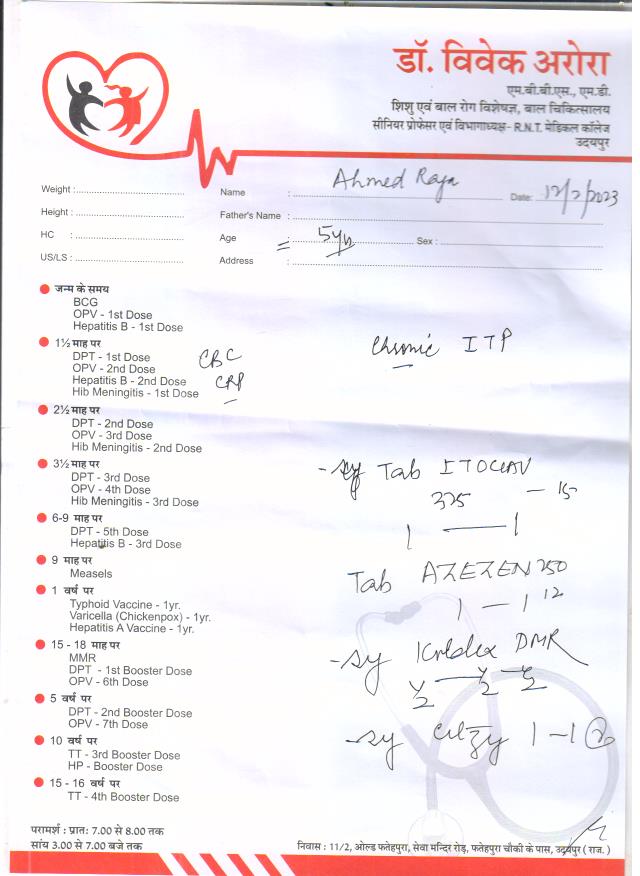 डॉ. विवेक अरोरा
एम.बी.बी.एस., एम.डी.
शिशु एवं बाल रोग विशेषज्ञ, बाल चिकित्सालय
सीनियर प्रोफेसर एवं विभागाध्यक्ष- R.N.T. मेडिकल कॉलेज
उदयपुर
Weight :
Height :
HC :
US/LS :
Name : Ahmed Raja
Date: 12/2/2023
Father's Name :
Age : 5yr Sex :
Address :
जन्म के समय
BCG
OPV - 1st Dose
Hepatitis B - 1st Dose
1½ माह पर
DPT - 1st Dose
OPV - 2nd Dose
Hepatitis B - 2nd Dose
Hib Meningitis - 1st Dose
CBC
CRP
Chronic ITP
2½ माह पर
DPT - 2nd Dose
OPV - 3rd Dose
Hib Meningitis - 2nd Dose
3½ माह पर
DPT - 3rd Dose
OPV - 4th Dose
Hib Meningitis - 3rd Dose
6-9 माह पर
DPT - 5th Dose
Hepatitis B - 3rd Dose
9 माह पर
Measels
1 वर्ष पर
Typhoid Vaccine - 1yr.
Varicella (Chickenpox) - 1yr.
Hepatitis A Vaccine - 1yr.
15 - 18 माह पर
MMR
DPT - 1st Booster Dose
OPV - 6th Dose
5 वर्ष पर
DPT - 2nd Booster Dose
OPV - 7th Dose
10 वर्ष पर
TT - 3rd Booster Dose
HP - Booster Dose
15 - 16 वर्ष पर
TT - 4th Booster Dose
Tab ITOCLAV
375 - 15
1 — 1
Tab AZEZEN 250
1 — 1 12
- sy DMR
½ — ½ — ½
- sy 1 - 1
परामर्श : प्रातः 7.00 से 8.00 तक
सांय 3.00 से 7.00 बजे तक
निवास : 11/2, ओल्ड फतेहपुरा, सेवा मन्दिर रोड़, फतेहपुरा चौकी के पास, उदयपुर ( राज. )